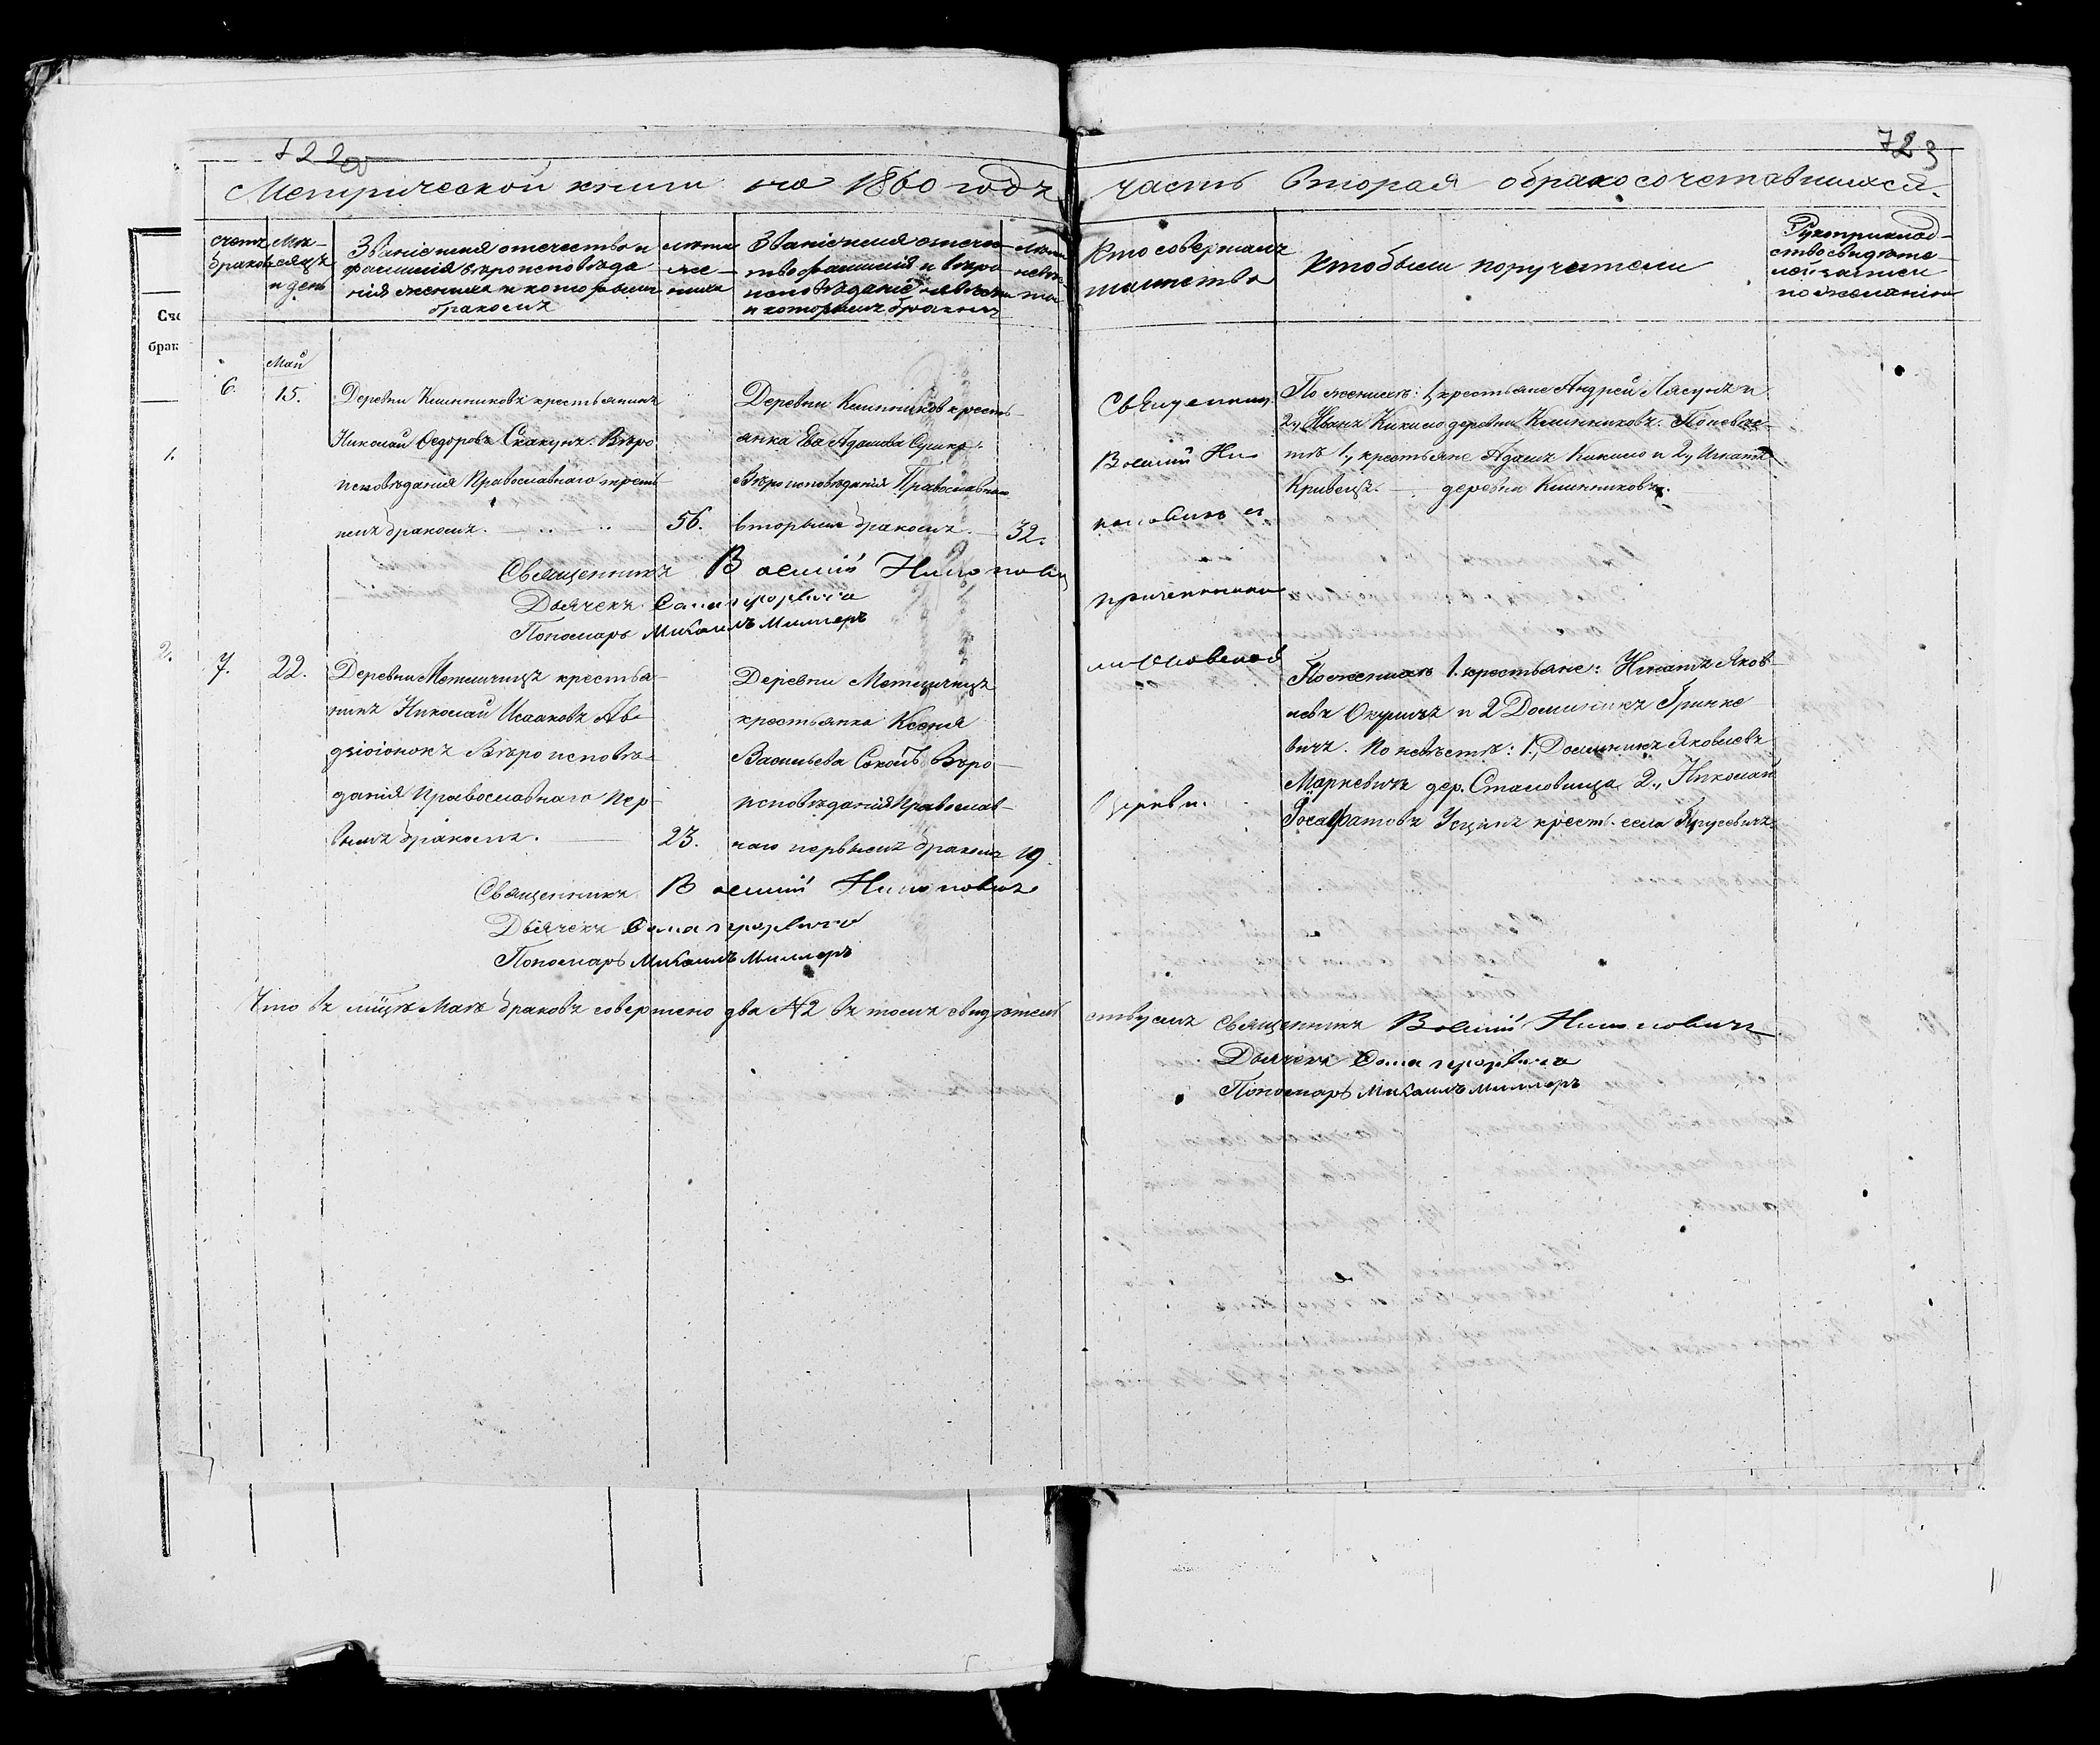 722 об
723
Метрической книги на 1860 годъ
часть вторая о бракосочетавшихся.
счетъ браковъ
Мѣсяцъ и день
Званіе имя отечество и
фамилія вѣроисповѣда
нія жениха и которымъ
бракомъ
лѣта
же-
ниха
Званіе имя отече
тво фамилія и вѣро
исповѣданіе невѣсты
и которымъ бракомъ
лѣта
невѣс
та
Кто совершалъ
таинство
Кто были поручители
Рукоприклад-
ство свидѣте-
лей записи
по желанію
Счe
брак
1.
2.
Май
6.
15.
Деревни Климниковъ крестьянинъ
Николай Ѳедоровъ Скакунъ. Вѣро
исповѣданія Православнаго треть
имъ бракомъ.
56.
Деревни Климников кресть-
янка Ева Адамова
Вѣроисповѣданія Православнаго
вторымъ бракомъ.
32.
Священникъ
По женихѣ: 1, крестьяне Андрей Лясунъ и
2, Иванъ Кикило деревни Климниковъ. По невѣс-
тѣ 1, крестьяне Адамъ Кикило и 2, Игнатъ
Кривецъ. деревни Климниковъ.
Василій
церкви.
Священникъ Василій
Дьячекъ Ѳома
Пономарь Михаилъ Миллеръ
7.
22.
Деревни Метличицъ крестья-
нинъ Николай Исааковъ Ав-
дзіюнокъ Вѣроисповѣ-
данія Православнаго пер-
вымъ бракомъ.
23.
Деревни Метличицъ
крестьянка Ксенія
Васильева Соколъ Вѣро-
исповѣданія Православ-
наго первымъ бракомъ
19.
По женихѣ 1. крестьяне: Игнатъ Яков-
левъ Окуличъ и 2 Доминикъ Гринке
вичъ. По невѣстѣ: 1., Доминикъ Яковлевъ
Маркевичъ дер. Становища 2., Николай
Іосафатовъ крест. села
Священникъ Василій
Дьячекъ Ѳома
Пономарь Михаилъ Миллеръ
Что въ мцѣ Маѣ браковъ совершено два №2 въ томъ свидѣтель
ствуемъ Священникъ Василій
Дьячекъ Ѳома
Пономарь Михаилъ Миллеръ